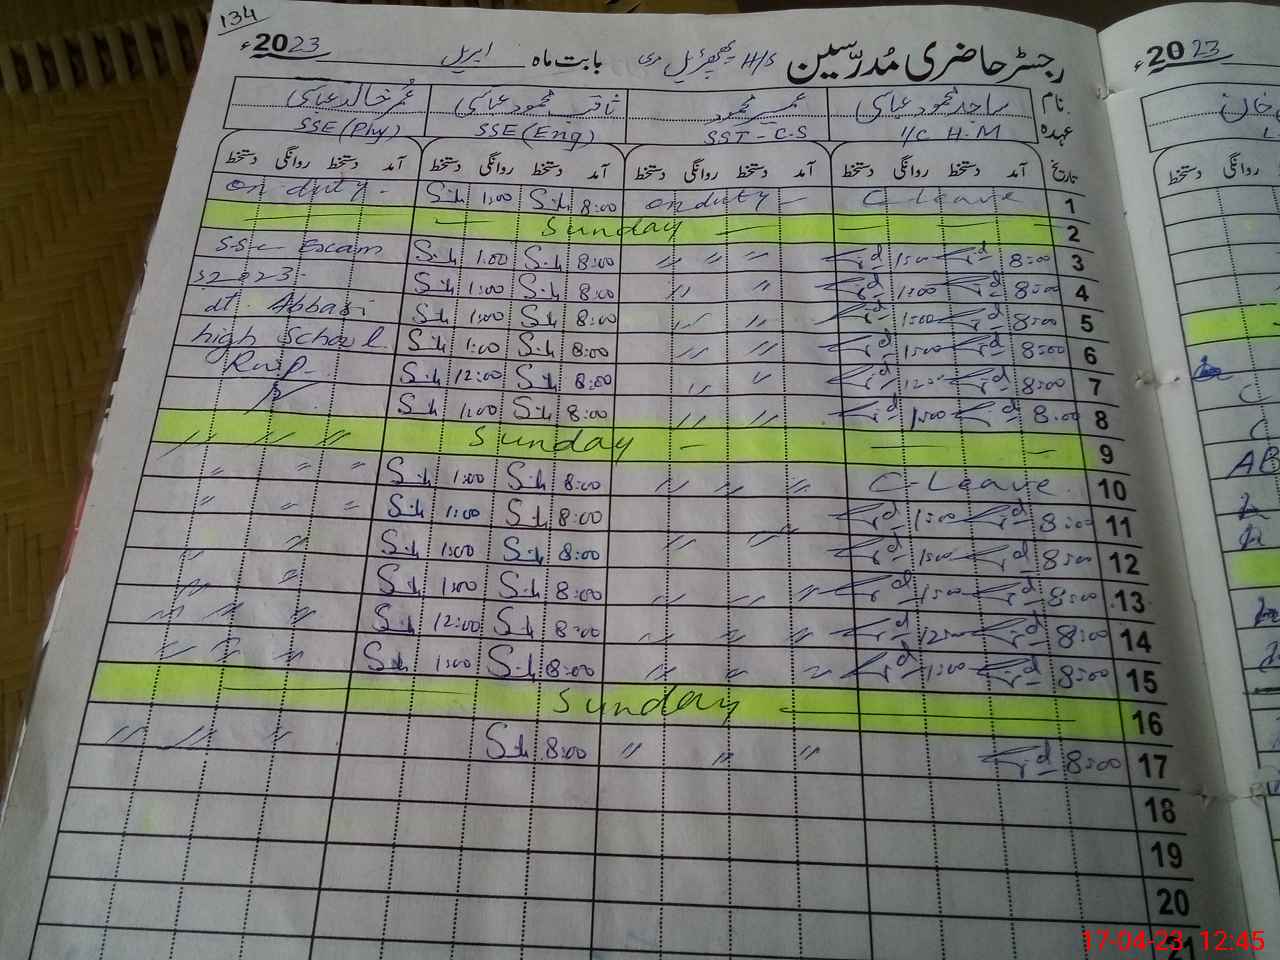 134
2023ء بابت ماہ اپریل H/S رجسٹر حاضری مُدرّسین
نام ساجد محمود عباسی عمر محمود ثاقب محمود عباسی عمر خالد عباسی
عہدہ I/C H.M SST-C-S SSE (Eng) SSE (Phy)
تاریخ آمد دستخط روانگی دستخط آمد دستخط روانگی دستخط آمد دستخط روانگی دستخط آمد دستخط روانگی دستخط
on duty - 1:00 8:00 on duty - C-Leave 1
Sunday 2
SSC Exam 1:00 8:00 〃 〃 1:00 8:00 3
1:00 8:00 〃 〃 1:00 8:00 4
at Abbasi 1:00 8:00 〃 〃 1:00 8:00 5
high School 1:00 8:00 〃 〃 1:00 8:00 6
Rwp- 12:00 8:00 〃 〃 12:00 8:00 7
1:00 8:00 〃 〃 1:00 8:00 8
〃 〃 〃 Sunday 9
〃 〃 〃 1:00 8:00 〃 〃 〃 C-Leave. 10
〃 〃 〃 1:00 8:00 1:00 8:00 11
〃 1:00 8:00 〃 〃 〃 1:00 8:00 12
〃 〃 1:00 8:00 〃 〃 〃 1:00 8:00 13
〃 〃 〃 12:00 8:00 〃 〃 〃 12:00 8:00 14
〃 〃 〃 1:00 8:00 〃 〃 〃 1:00 8:00 15
Sunday 16
〃 〃 〃 8:00 〃 〃 〃 8:00 17
18
19
20
21
2023ء
خان
روانگی دستخط
C
C
AB
17-04-23 12:45